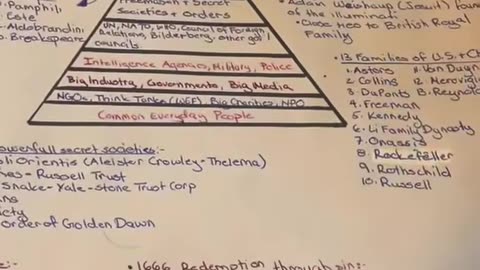 Freemason + Secret
Societies + Orders
UN, NATO, WHO, Council of Foreign
Relations, Bilderberg, other gov
councils
Intelligence Agencies, Military, Police
Big Industry, Governments, Big Media
NGOs, Think Tanks (WEF), Big Charities, NPO
Common Everyday People
Pamphili,
Este
Aldobrandini
Breakspeare
Adam Weishaup (Jesuit) foun
of the illuminati
ties to British Royal
Family
13 Families of U.S. +
1. Astors
2. Collins
3. DuPonts
4. Freeman
5. Kennedy
6. Li Family Dynasty
7. Onassis
8. Rockefeller
9. Rothschild
10. Russell
11. Van Duyn
12. Merovigi
13. Reynold
powerfull secret societies:-
li Orientis (Aleister Crowley-Thelema)
es - Russell Trust
Snake - Yale - stone Trust Corp
ans
ciety
order of Golden Dawn
1666 Redemption through sin:-